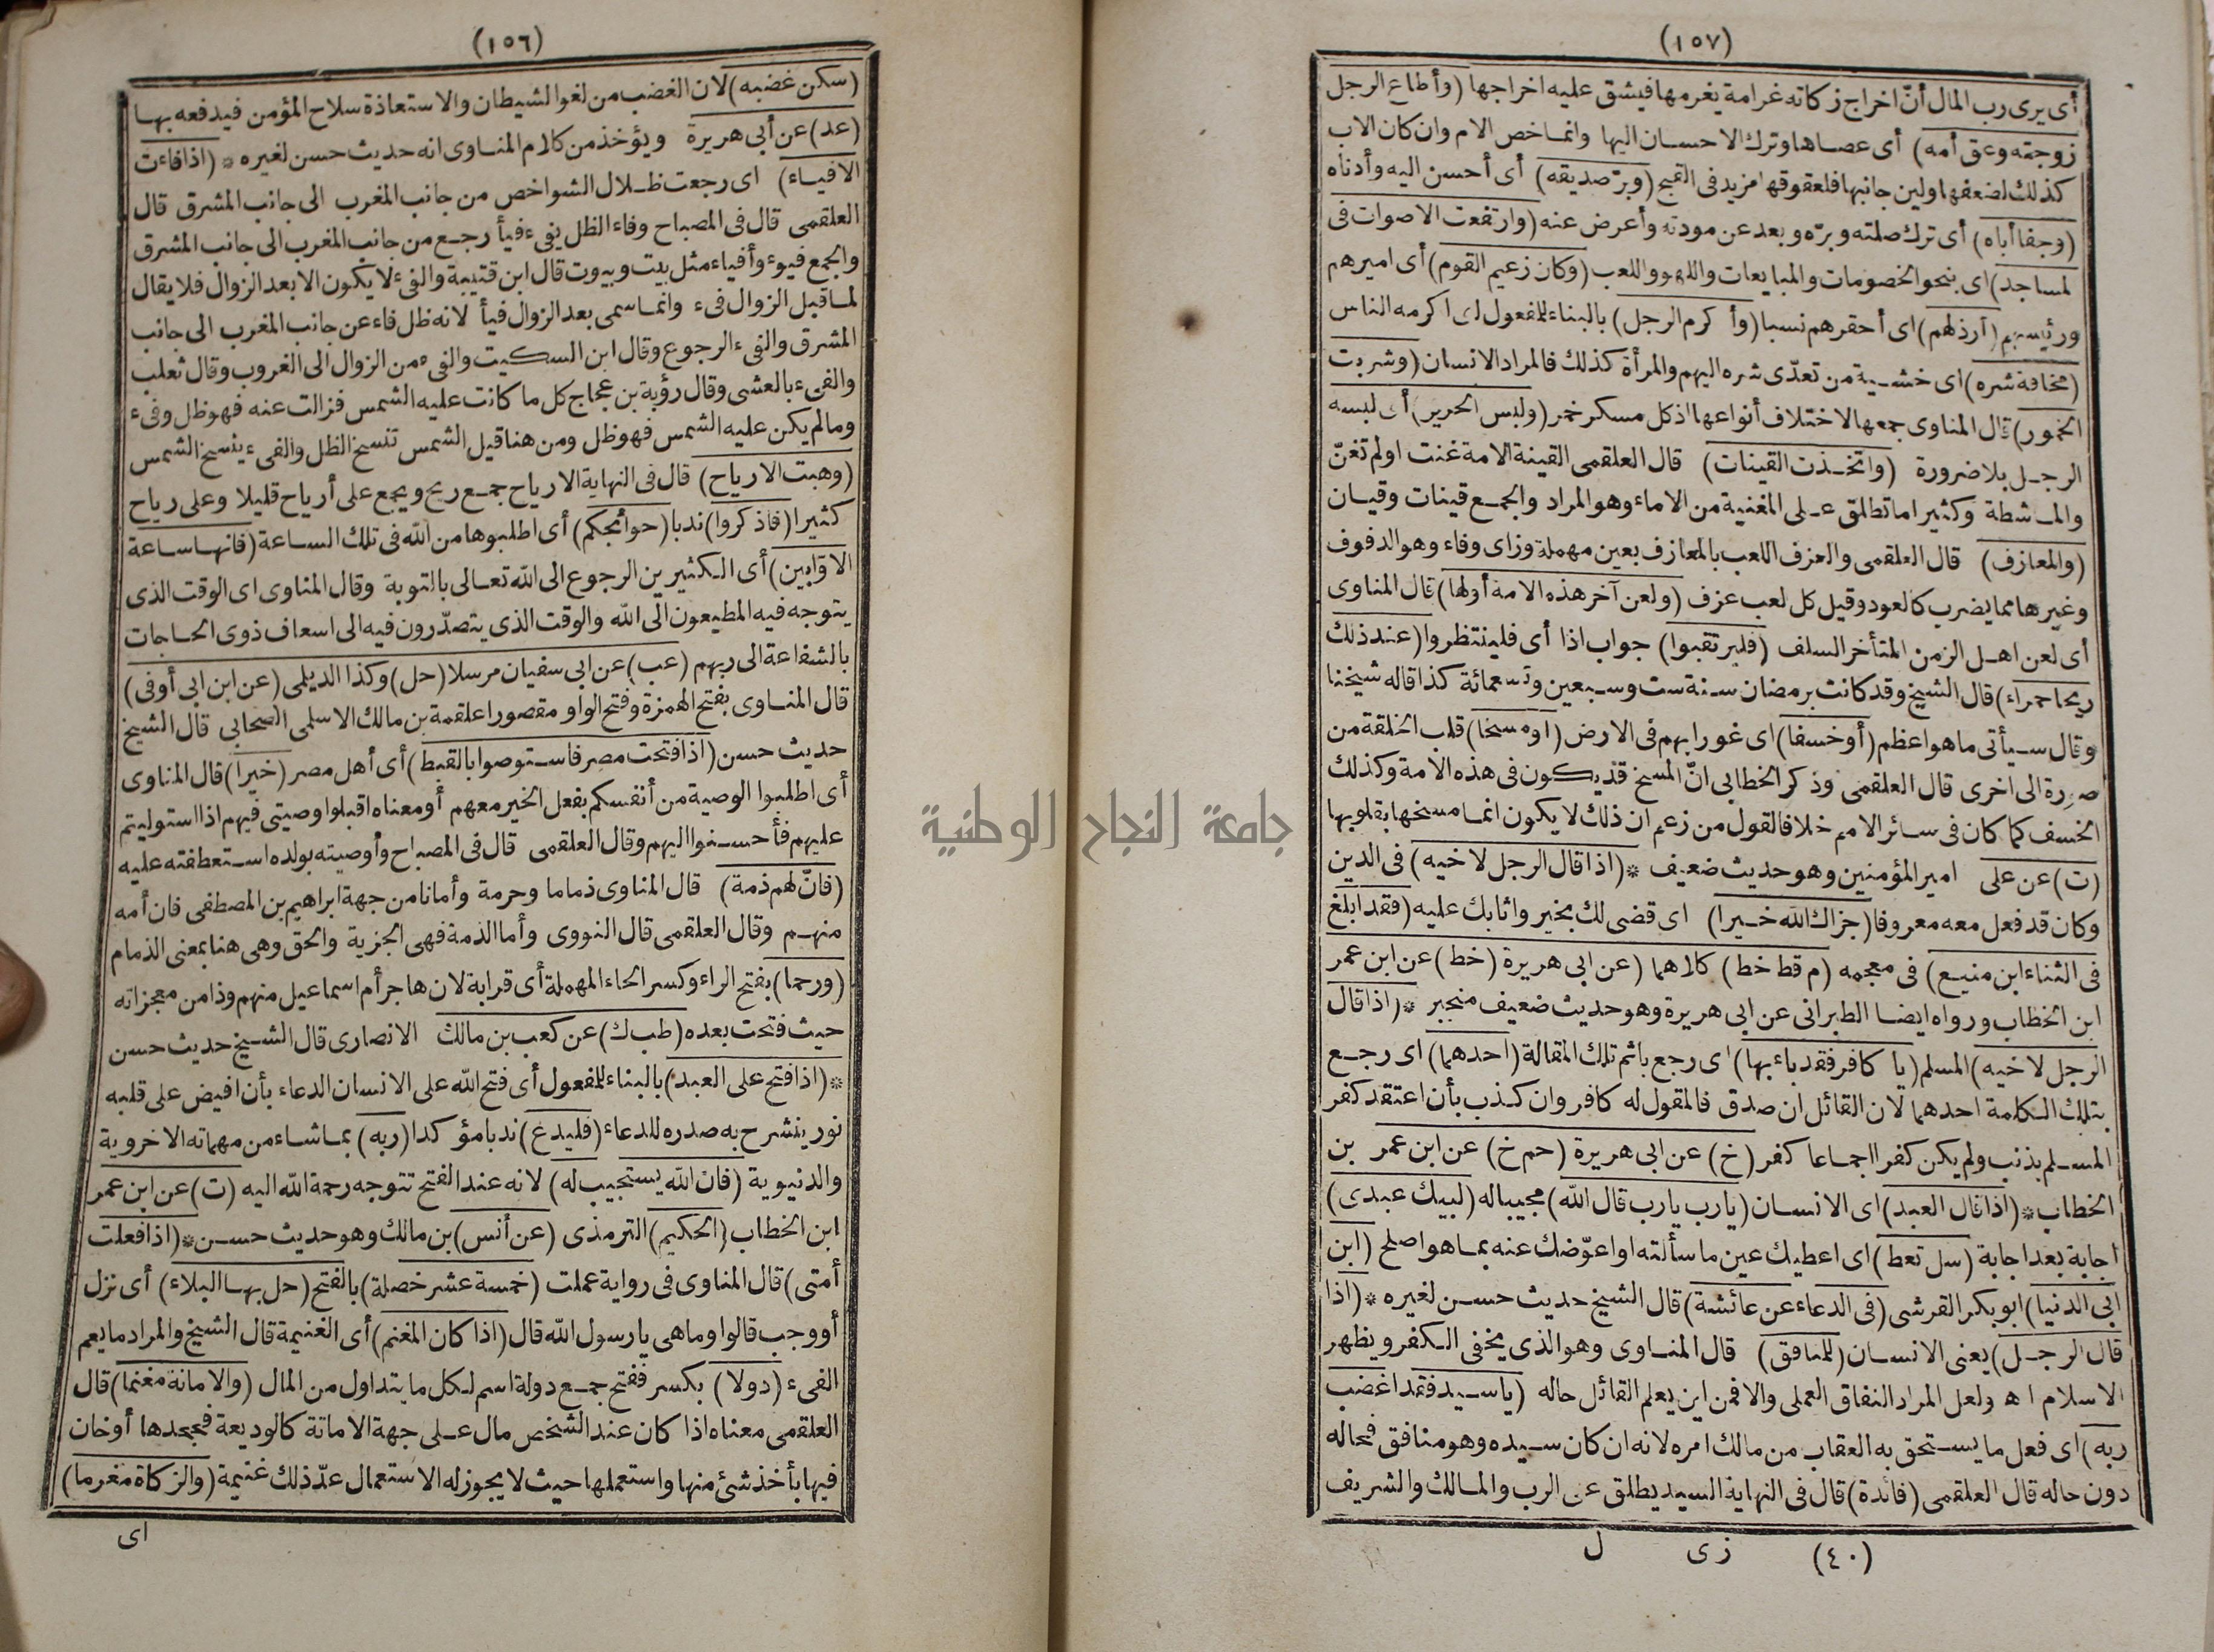 (١٥٦)
(سكن غضبه) لان الغضب من لغو الشيطان والاستعاذة سلاح المؤمن فيدفعه بها
(عد) عن أبى هريرة ويؤخذ من كلام المناوى انه حديث حسن لغيره * (اذا فاءت
الافياء) اى رجعت ظلال الشواخص من جانب المغرب الى جانب المشرق قال
العلقمى قال فى المصباح وفاء الظل يفىء فيأ رجع من جانب المغرب الى جانب المشرق
والجمع فيوء وأفياء مثل بيت وبيوت قال ابن قتيبة والفىء لا يكون الا بعد الزوال فلا يقال
لما قبل الزوال فىء وانما سمى بعد الزوال فيأ لانه ظل فاء عن جانب المغرب الى جانب
المشرق والفىء الرجوع وقال ابن السكيت والفىء من الزوال الى الغروب وقال ثعلب
والفىء بالعشى وقال رؤبة بن عجاج كل ما كانت عليه الشمس فزالت عنه فهو ظل وفىء
وما لم يكن عليه الشمس فهو ظل ومن هنا قيل الشمس تنسخ الظل والفىء ينسخ الشمس
(وهبت الارياح) قال فى النهاية الارياح جمع ريح ويجمع على أرياح قليلا وعلى رياح
كثيرا (فاذكروا) ندبا (حوائجكم) أى اطلبوها من الله فى تلك الساعة (فانها ساعة
الاوّابين) أى الكثيرين الرجوع الى الله تعالى بالتوبة وقال المناوى اى الوقت الذى
يتوجه فيه المطيعون الى الله والوقت الذى يتصدّرون فيه الى اسعاف ذوى الحاجات
بالشفاعة الى ربهم (عب) عن ابى سفيان مرسلا (حل) وكذا الديلمى (عن ابن ابى أوفى)
قال المناوى بفتح الهمزة وفتح الواو مقصورا علقمة بن مالك الاسلمى الصحابى قال الشيخ
حديث حسن (اذا فتحت مصر فاستوصوا بالقبط) أى أهل مصر (خيرا) قال المناوى
أى اطلبوا الوصية من أنفسكم بفعل الخير معهم أو معناه اقبلوا وصيتى فيهم اذا استوليتم
عليهم فأحسنوا اليهم وقال العلقمى قال فى المصباح وأوصيته بولده استعطفته عليه
(فانّ لهم ذمة) قال المناوى ذماما وحرمة وأمانا من جهة ابراهيم بن المصطفى فان أمه
منهم وقال العلقمى قال النووى وأما الذمة فهى الجزية والحق وهى هنا بمعنى الذمام
(ورحما) بفتح الراء وكسر الحاء المهملة أى قرابة لان هاجر أم اسماعيل منهم وذا من معجزاته
حيث فتحت بعده (طب ك) عن كعب بن مالك الانصارى قال الشيخ حديث حسن
* (اذا فتح على العبد) بالبناء للمفعول أى فتح الله على الانسان الدعاء بأن افيض على قلبه
نور ينشرح به صدره للدعاء (فليدع) ندبا مؤكدا (ربه) بما شاء من مهماته الاخروية
والدنيوية (فان الله يستجيب له) لانه عند الفتح تتوجه رحمة الله اليه (ت) عن ابن عمر
ابن الخطاب (الحكيم) الترمذى (عن أنس) بن مالك وهو حديث حسن * (اذا فعلت
أمتى) قال المناوى فى رواية عملت (خمسة عشر خصلة) بالفتح (حل بها البلاء) أى نزل
أو وجب قالوا وما هى يا رسول الله قال (اذا كان المغنم) أى الغنيمة قال الشيخ والمراد ما يعم
الفىء (دولا) بكسر ففتح جمع دولة اسم لكل ما يتداول من المال (والامانة مغنما) قال
العلقمى معناه اذا كان عند الشخص مال على جهة الامانة كالوديعة فجحدها أو خان
فيها بأخذ شئ منها واستعملها حيث لا يجوز له الاستعمال عدّ ذلك غنيمة (والزكاة مغرما)
اى
(١٥٧)
أى يرى رب المال أنّ اخراج زكاته غرامة يغرمها فيشق عليه اخراجها (وأطاع الرجل
زوجته وعق أمه) أى عصاها وترك الاحسان اليها وانما خص الام وان كان الاب
كذلك لضعفها ولين جانبها فلعقوقها مزيد فى القبح (وبرّ صديقه) أى أحسن اليه وأدناه
(وجفا أباه) أى ترك صلته وبرّه وبعد عن مودته وأعرض عنه (وارتفعت الاصوات فى
لمساجد) اى بنحو الخصومات والمبايعات واللهو واللعب (وكان زعيم القوم) أى اميرهم
ورئيسهم (أرذلهم) اى أحقرهم نسبا (وأكرم الرجل) بالبناء للمفعول اى اكرمه الناس
(مخافة شره) اى خشية من تعدّى شره اليهم والمرأة كذلك فالمراد الانسان (وشربت
الخمور) قال المناوى جمعها لاختلاف أنواعها اذ كل مسكر خمر (ولبس الحرير) أى لبسه
الرجل بلا ضرورة (واتخذت القينات) قال العلقمى القينة الامة غنت اولم تغنّ
والماشطة وكثيرا ما تطلق على المغنية من الاماء وهو المراد والجمع قينات وقيان
(والمعازف) قال العلقمى والعزف اللعب بالمعازف بعين مهملة وزاى وفاء وهو الدفوف
وغيرها مما يضرب كالعود وقيل كل لعب عزف (ولعن آخر هذه الامة أولها) قال المناوى
أى لعن اهل الزمن المتأخر السلف (فليرتقبوا) جواب اذا أى فلينتظروا (عند ذلك
ريحا حمراء) قال الشيخ وقد كانت برمضان سنة ست وسبعين وتسعمائة كذا قاله شيخنا
وقال سيأتى ما هو اعظم (أو خسفا) اى غورا بهم فى الارض (او مسخا) قلب الخلقة من
صورة الى اخرى قال العلقمى وذكر الخطابى انّ المسخ قد يكون فى هذه الامة وكذلك
الخسف كما كان فى سائر الامم خلافا لقول من زعم ان ذلك لا يكون انما مسخها بقلوبها
(ت) عن على امير المؤمنين وهو حديث ضعيف * (اذا قال الرجل لاخيه) فى الدين
وكان قد فعل معه معروفا (جزاك الله خيرا) اى قضى لك بخير واثابك عليه (فقد ابلغ
فى الثناء ابن منيع) فى معجمه (م قط خط) كلاهما (عن ابى هريرة (خط) عن ابن عمر
ابن الخطاب ورواه ايضا الطبرانى عن ابى هريرة وهو حديث ضعيف منجبر * (اذا قال
الرجل لاخيه) المسلم (يا كافر فقد باء بها) اى رجع باثم تلك المقالة (احدهما) اى رجع
بتلك الكلمة احدهما لان القائل ان صدق فالمقول له كافر وان كذب بأن اعتقد كفر
المسلم بذنب ولم يكن كفرا اجماعا كفر (خ) عن ابى هريرة (حم خ) عن ابن عمر بن
الخطاب * (اذا قال العبد) اى الانسان (يا رب يا رب قال الله) مجيبا له (لبيك عبدى)
اجابة بعد اجابة (سل تعط) اى اعطيك عين ما سألته او اعوّضك عنه بما هو اصلح (ابن
ابى الدنيا) ابو بكر القرشى (فى الدعاء عن عائشة) قال الشيخ حديث حسن لغيره * (اذا
قال الرجل) يعنى الانسان (للمنافق) قال المناوى وهو الذى يخفى الكفر ويظهر
الاسلام اه ولعل المراد النفاق العملى والا فمن اين يعلم القائل حاله (يا سيد فقد اغضب
ربه) اى فعل ما يستحق به العقاب من مالك امره لانه ان كان سيده وهو منافق فحاله
دون حاله قال العلقمى (فائدة) قال فى النهاية السيد يطلق على الرب والمالك والشريف
(٤٠) زى ل
جامعة النجاح الوطنية